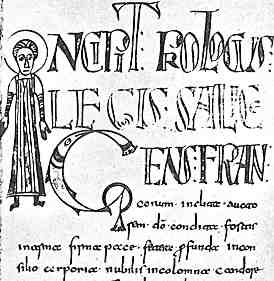 INCIPIT PROLOGUS
LEGIS SALICE
GENS FRAN
corum · inclita · aucto
dō condita · fortis
in arma firma pace · profunda in con
silio corporea · nobilis incolomna candore